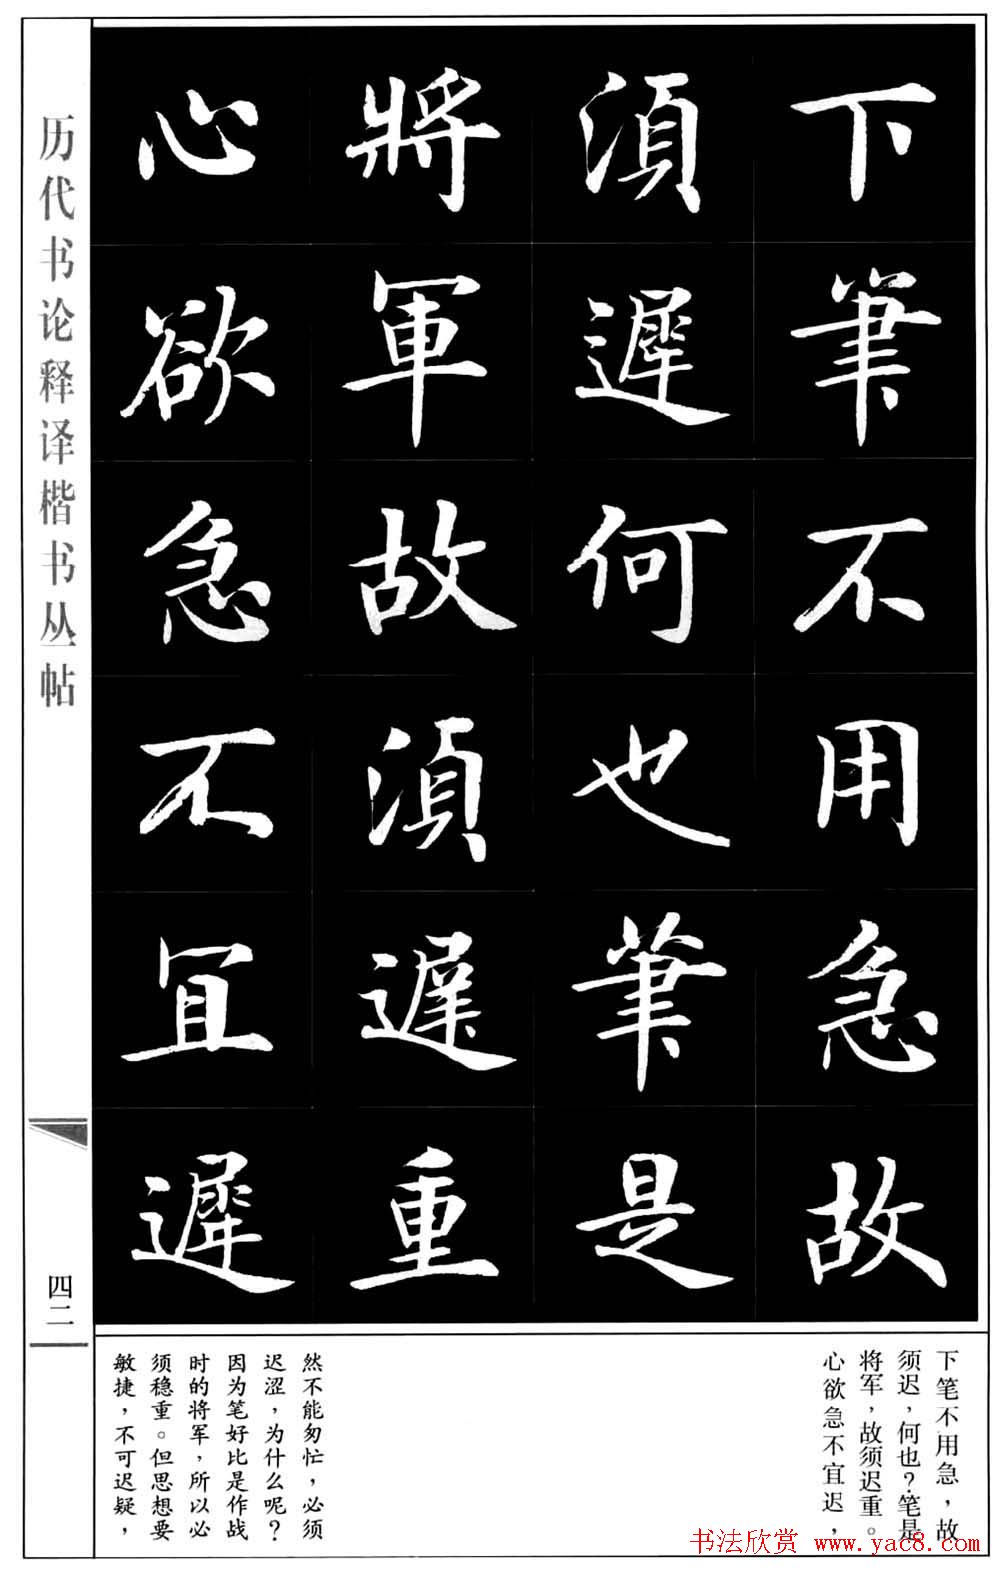 下筆不用急故
須遲何也筆是
將軍故須遲重
心欲急不宜遲
历代书论释译楷书丛帖
四二
下笔不用急，故
须迟，何也？笔是
将军，故须迟重。
心欲急不宜迟，
然不能匆忙，必须
迟涩，为什么呢？
因为笔好比是作战
时的将军，所以必
须稳重。但思想要
敏捷，不可迟疑，
书法欣赏 www.yac8.com